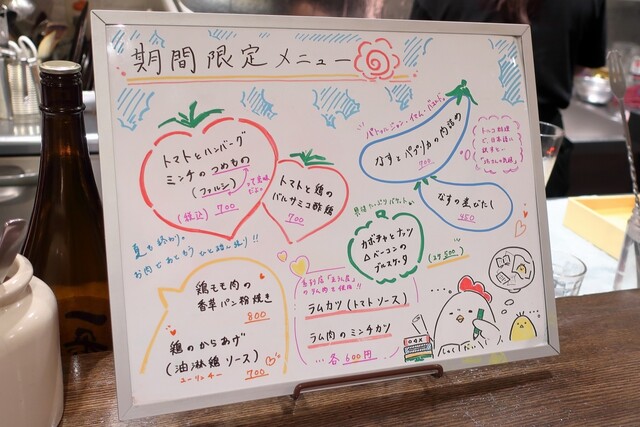 期間限定メニュー
トマトとハンバーグ
ミンチのつめもの
(ファルシ)
って意味
だよ。
(税込) 700
トマトと鶏の
バルサミコ酢鶏
700
なすとパプリカの肉詰め
700
なすの煮びたし
450
夏も終わり。
お肉で
ひと踏ん張り!!
カボチャとナッツ
ベーコンの
ブルスケッタ
鶏もも肉の
香草パン粉焼き
800
鶏のからあげ
(油淋鶏ソース)
ユーリンチー
700
ラムカツ(トマトソース)
ラム肉のミンチカツ
各600円